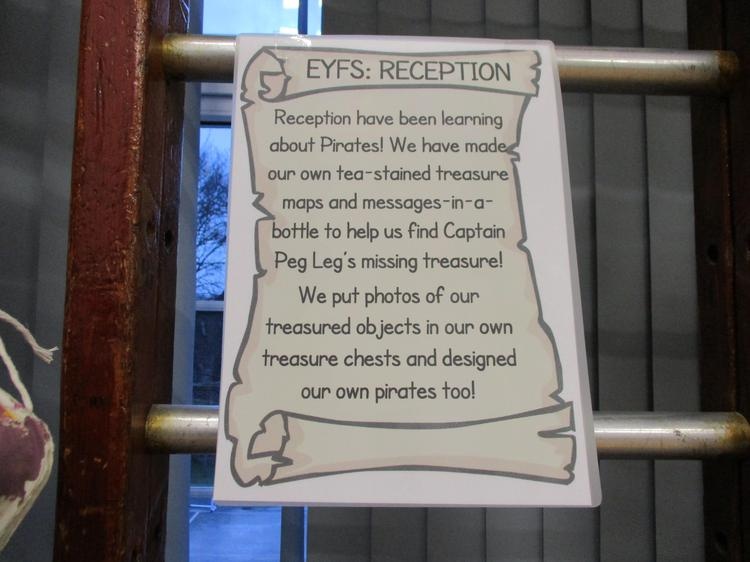 EYFS: RECEPTION
Reception have been learning
about Pirates! We have made
our own tea-stained treasure
maps and messages-in-a-
bottle to help us find Captain
Peg Leg's missing treasure!
We put photos of our
treasured objects in our own
treasure chests and designed
our own pirates too!